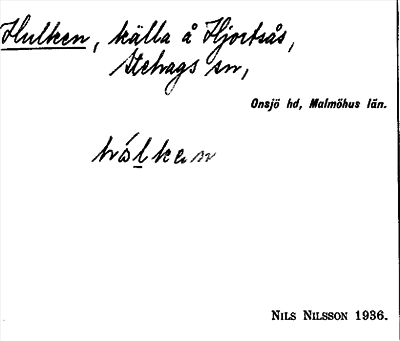 Hulken, källa å Hjortsås,
Stehags sn,
Onsjö hd, Malmöhus län.
hólken
NILS NILSSON 1936.